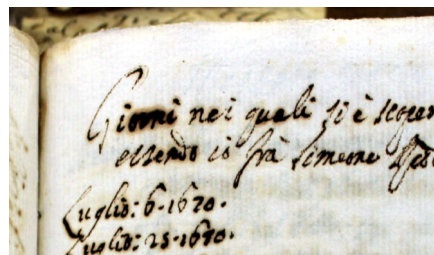 Giorni nei quali si è scoper
essendo io frà Simeone
Luglio: 6-1670.
Luglio: 25-1670.